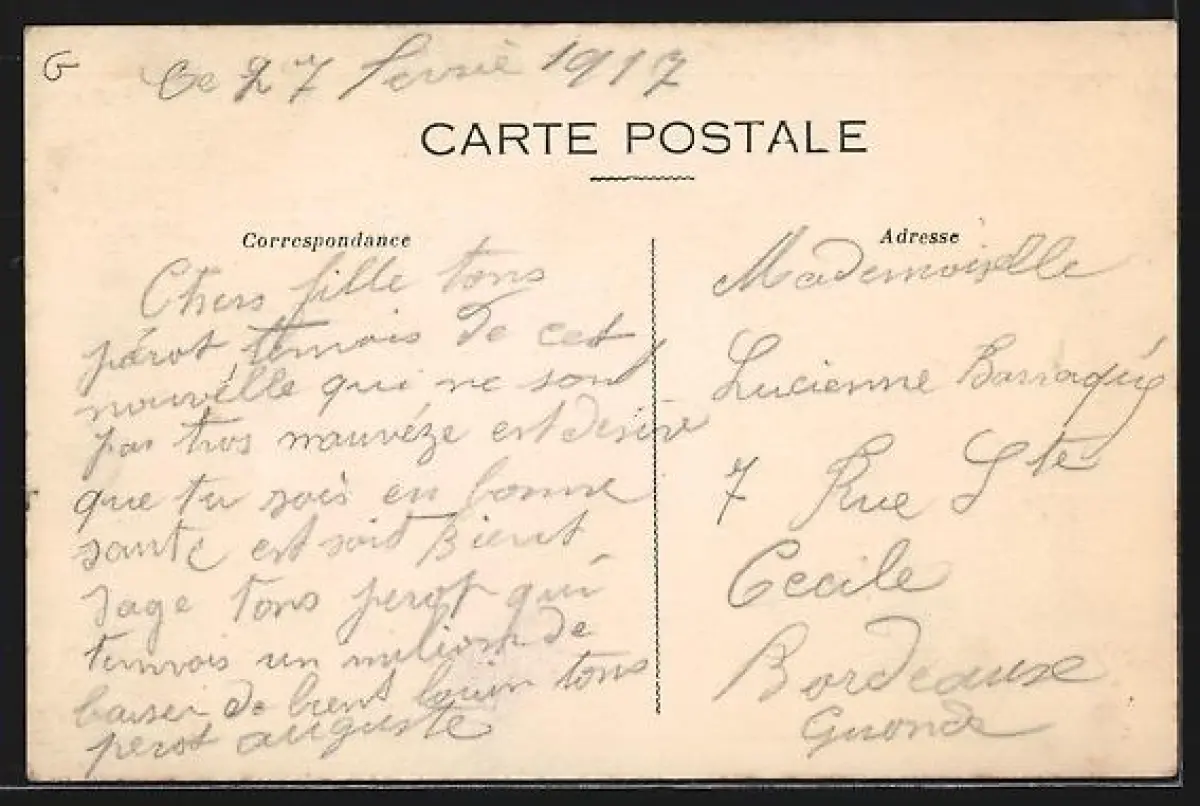 G
Ce 27 fevrié 1917
CARTE POSTALE
Correspondance
Chers fille tons
pérot temvois de cet
nouvélle qui ne sont
pas tros mauvéze est desire
que tu sois en bonne
sante est soit Bient
sage tons perot qui
temvois un milion de
baiser de bient louin tons
perot auguste
Adresse
Mademoiselle
Lucienne Barraqué
7 Rue Ste
Cecile
Bordeaux
Gironde